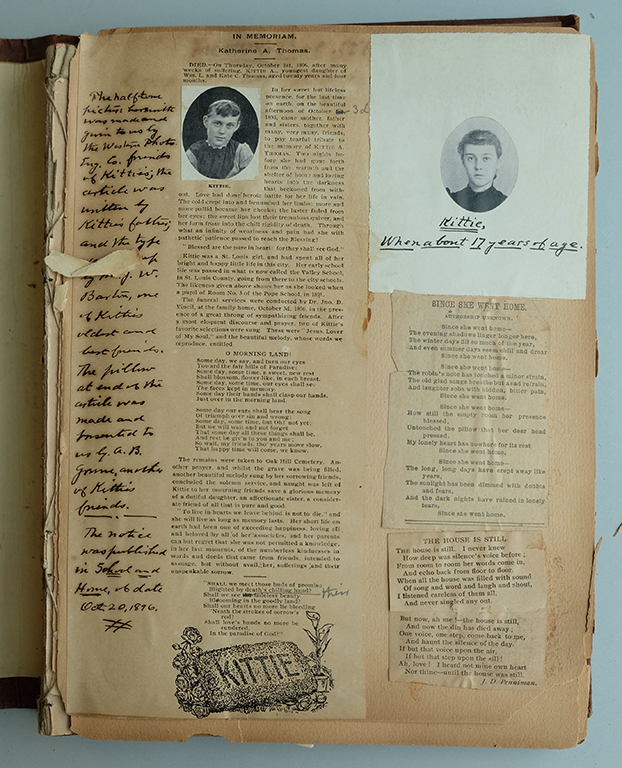 The half tone
picture herewith
was made and
given to us by
the Western Photo
Eng. Co. friends
of Kitties; the
article was
written by
Kitties father,
and the type
up
by Mr. J. W.
Barton, one
of Kitties
oldest and
best friends.
The pillow
at end of the
article was
made and
presented to
us by A. B.
another
of Kitties
friends.
The notice
was published
in School and
Home, of date
Oct. 20, 1896.
IN MEMORIAM.
Katherine A. Thomas.
DIED.—On Thursday, October 1st, 1896, after many
weeks of suffering, KITTIE A., youngest daughter of
Wm. L. and Kate C. Thomas, aged twenty years and four
months.
In her sweet but lifeless
presence, for the last time
on earth, on the beautiful
afternoon of October 3d
1896, came mother, father
and sisters, together with
many, very many, friends,
to pay tearful tribute to
the memory of KITTIE A.
THOMAS. Two nights be-
fore she had gone forth
from the warmth and the
shelter of home and loving
hearts into the darkness
that beckoned from with-
out. Love had done heroic battle for her life in vain.
The cold crept into and benumbed her limbs; more and
more pallid became her cheeks; the luster faded from
her eyes; the sweet lips lost their tremulous quiver, and
her form froze into the chill rigidity of death. Through
what an infinity of weariness and pain had she with
pathetic patience passed to reach the Blessing!
KITTIE.
"Blessed are the pure in heart: for they shall see God."
Kittie was a St. Louis girl, and had spent all of her
bright and happy little life in this city. Her early school
life was passed in what is now called the Valley School,
in St. Louis County, going from there to the city schools.
The likeness given above shows her as she looked when
a pupil of Room No. 3 of the Pope School, in 1891.
The funeral services were conducted by Dr. Jno. D.
Vincil, at the family home, October 3d, 1896, in the pres-
ence of a great throng of sympathizing friends. After
a most eloquent discourse and prayer, two of Kittie's
favorite selections were sung. These were "Jesus, Lover
of My Soul," and the beautiful melody, whose words we
reproduce, entitled
O MORNING LAND!
Some day, we say, and turn our eyes
Toward the fair hills of Paradise;
Some day, some time, a sweet, new rest
Shall blossom, flower-like, in each breast.
Some day, some time, our eyes shall see
The faces kept in memory.
Some day their hands shall clasp our hands,
Just over in the morning land.
Some day our ears shall hear the song
Of triumph over sin and wrong;
Some day, some time, but Oh! not yet;
But we will wait and not forget
That some day all these things shall be,
And rest be giv'n to you and me;
So wait, my friends, tho' years move slow,
That happy time will come, we know.
The remains were taken to Oak Hill Cemetery. An-
other prayer, and whilst the grave was being filled,
another beautiful melody sung by her sorrowing friends,
concluded the solemn service, and naught was left of
Kittie to her mourning friends save a glorious memory
of a dutiful daughter, an affectionate sister, a consider-
ate friend of all that is pure and good.
"To live in hearts we leave behind is not to die," and
she will live as long as memory lasts. Her short life on
earth had been one of exceeding happiness, loving all
and beloved by all of her associates, and her parents
can but regret that she was not permitted a knowledge,
in her last moments, of the numberless kindnesses in
words and deeds that came from friends, intended to
assuage, but without avail, her sufferings and their
unspeakable sorrow.
"SHALL we meet those buds of promise
Blighted by death's chilling hand?
Shall we see their fadeless beauty
Blooming in the goodly land?
Shall our hearts no more be bleeding
'Neath the strokes of sorrow's
rod?
Shall love's bands no more be
sundered,
In the paradise of God?"
KITTIE
Kittie,
When about 17 years of age.
SINCE SHE WENT HOME.
AUTHORSHIP UNKNOWN.
Since she went home—
The evening shadows linger longer here,
The winter days fill so much of the year,
And even summer days seem chill and drear
Since she went home.
Since she went home—
The robin's note has touched a minor strain,
The old glad songs breathe but a sad refrain,
And laughter sobs with hidden, bitter pain,
Since she went home.
Since she went home—
How still the empty room her presence
blessed,
Untouched the pillow that her dear head
pressed,
My lonely heart has nowhere for its rest
Since she went home.
Since she went home—
The long, long days have crept away like
years,
The sunlight has been dimmed with doubts
and fears,
And the dark nights have rained in lonely
tears,
Since she went home.
THE HOUSE IS STILL
THE house is still. I never knew
How deep was silence's voice before;
From room to room her words come in,
And echo back from floor to floor.
When all the house was filled with sound
Of song and word and laugh and shout,
I listened careless of them all,
And never singled any out.
But now, ah me!—the house is still,
And now the din has died away;
One voice, one step, come back to me,
And haunt the silence of the day.
If but that voice upon the air,
If but that step upon the sill!
Ah, love! I heard not mine own heart
Nor thine—until the house was still.
J. D. Penniman.